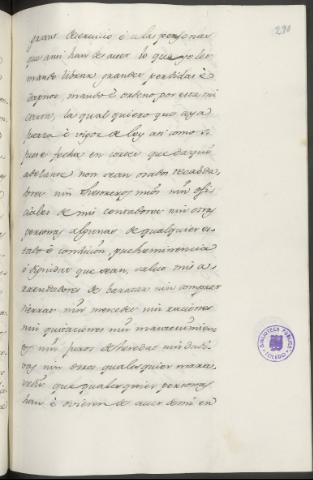 290
grant deservicio è a las personas
que ami han de aver lo que yo les
mando librar grandes perdidas è
daynos, mando è ordeno por esta mi
carta, la qual quiero que aya
fuerza è vigor de ley asi como si
fuese fecha en cortes que de aqui
adelante non sean osados recabda
dores nin thesoreros mios nin ofi
ciales de mis contadores nin otras
personas algunas de qualquier es
tado è condicion, preheminencia
ò dignidat que sean, salvo mis a
rrendadores de baratar nin comprar
tierras nin mercedes nin raciones
nin quitaciones nin mantenimien
os nin juros de heredat nin dadi
vas nin otros qualesquier marave
dis que qualesquier personas
han è ovieren de aver de mi en
BIBLIOTECA PUBLICA
TOLEDO